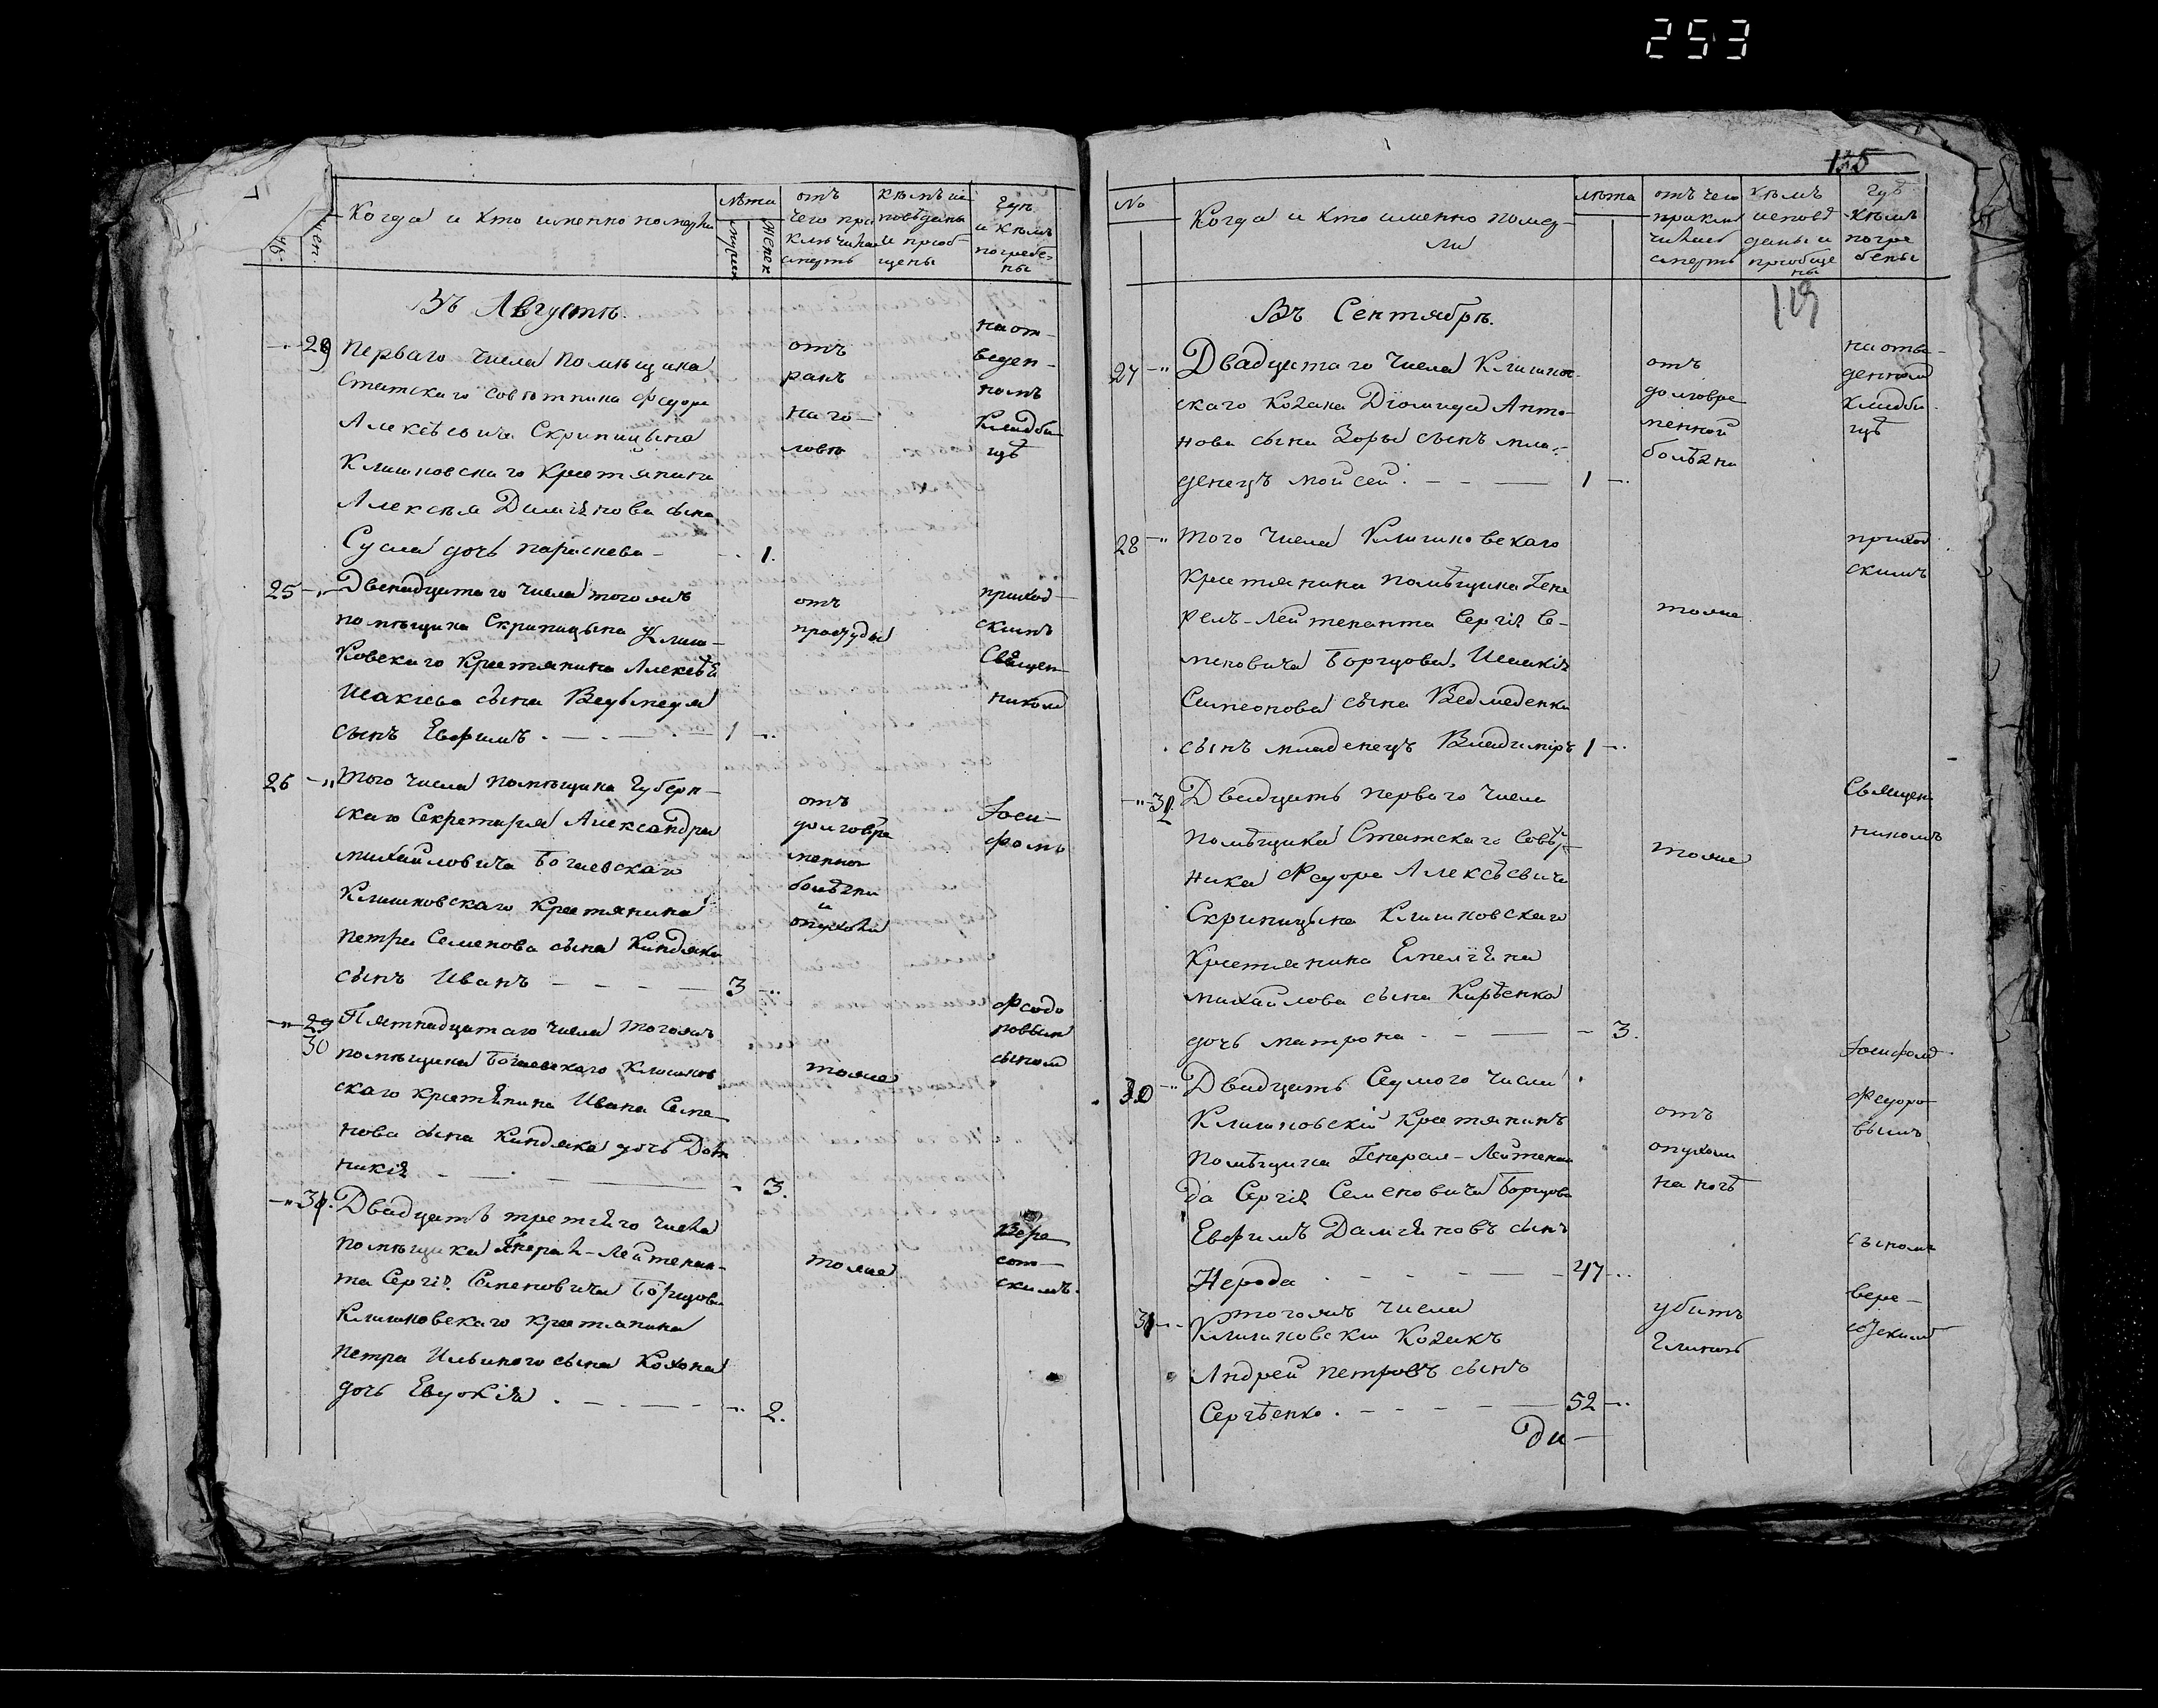 253
Когда и кто именно померли
Лѣта
мужеск
Женск
отъ
чего при
ключилась
смерть
кѣмъ ис
повѣданы
и приоб-
щены
гдѣ
и кѣмъ
погребе-
ны
Въ Августѣ.
Перваго числа помѣщика
Статскаго Совѣтника Федора
Алексѣевича Скрипицына
Клишковскаго крестянина
Алексѣя Даміянова сына
Сусла дочь Параскева - 1.
отъ
ранъ
на го-
ловѣ
на от-
веден-
номъ
Кладби
щѣ
25 Двенадцатаго числа тогожъ
помѣщика Скрипицына Клиш-
ковскаго Крестянина Алексѣя
Исакіева сына Ведьмедя
сынъ Евфимъ. - 1
отъ
простуды
приход-
скимъ
Священ-
никомъ
26 Того числа помѣщика Губерн-
скаго Секретаря Александра
Михайловича Богаевскаго
Клишковскаго Крестянина
Петра Семенова сына Киндяка
сынъ Иванъ - 3
отъ
долговре
менной
болѣзни
и
опухоли
Іоси-
фомъ
29
30
Пятнадцатаго числа тогожъ
помѣщика Богаевскаго Клишков
скаго крестянина Ивана Семе
нова сына Киндяка дочь Дом
никія - 3.
тоже
Федо
ровым
сыном
31. Двадцать третяго числа
помѣщика Генерал-Лейтенан-
та Сергія Семеновича Борщова
Клишковскаго крестянина
Петра Ильиного сына Кохона
дочь Евдокія. - 2.
тоже
Вере
сот-
скимъ.
135
№
Когда и кто именно помер-
ли
лѣта
отъ чего
приклю
чилась
смерть
кѣмъ
исповѣ
даны и
приобще
ны
гдѣ
кѣмъ
погре
бены
119
Въ Сентябрѣ.
27 Двадцятаго числа Клишков-
скаго Козака Діомида Анто-
нова сына Зоры сынъ мла-
денецъ Мойсей. - 1
отъ
долговре
менной
болѣзни
на отве-
денном
кладби-
щѣ
28 Того числа Клишковскаго
Крестянина помѣщика Гене
рал-Лейтенанта Сергія Се-
меновича Борщова, Исакія
Симеонова сына Ведмеденка
сынъ младенецъ Владиміръ 1
тоже
приход
скимъ
32 Двадцать перваго числа
Помѣщика Статскаго Совѣт-
ника Федора Алексѣевича
Скрипицына Клишковскаго
Крестянина Емеліяна
Михайлова сына Кирѣенка
дочь Матрона - 3.
тоже
Священ
никомъ
30 Двадцать Седмого числа
Клишковскій Крестянинъ
Помѣщика Генерал-Лейтенан
та Сергія Семеновича Борщова
Евфимъ Даміяновъ сынъ
Нерода - 47
отъ
опухоли
на ногѣ
Іосифом
Федоро
вымъ
31 Тогожъ числа
Клишковскій Козакъ
Андрей Петровъ сынъ
Сергѣенко. - 52
убитъ
глиною
сыномъ
Вере-
сотским
Два-